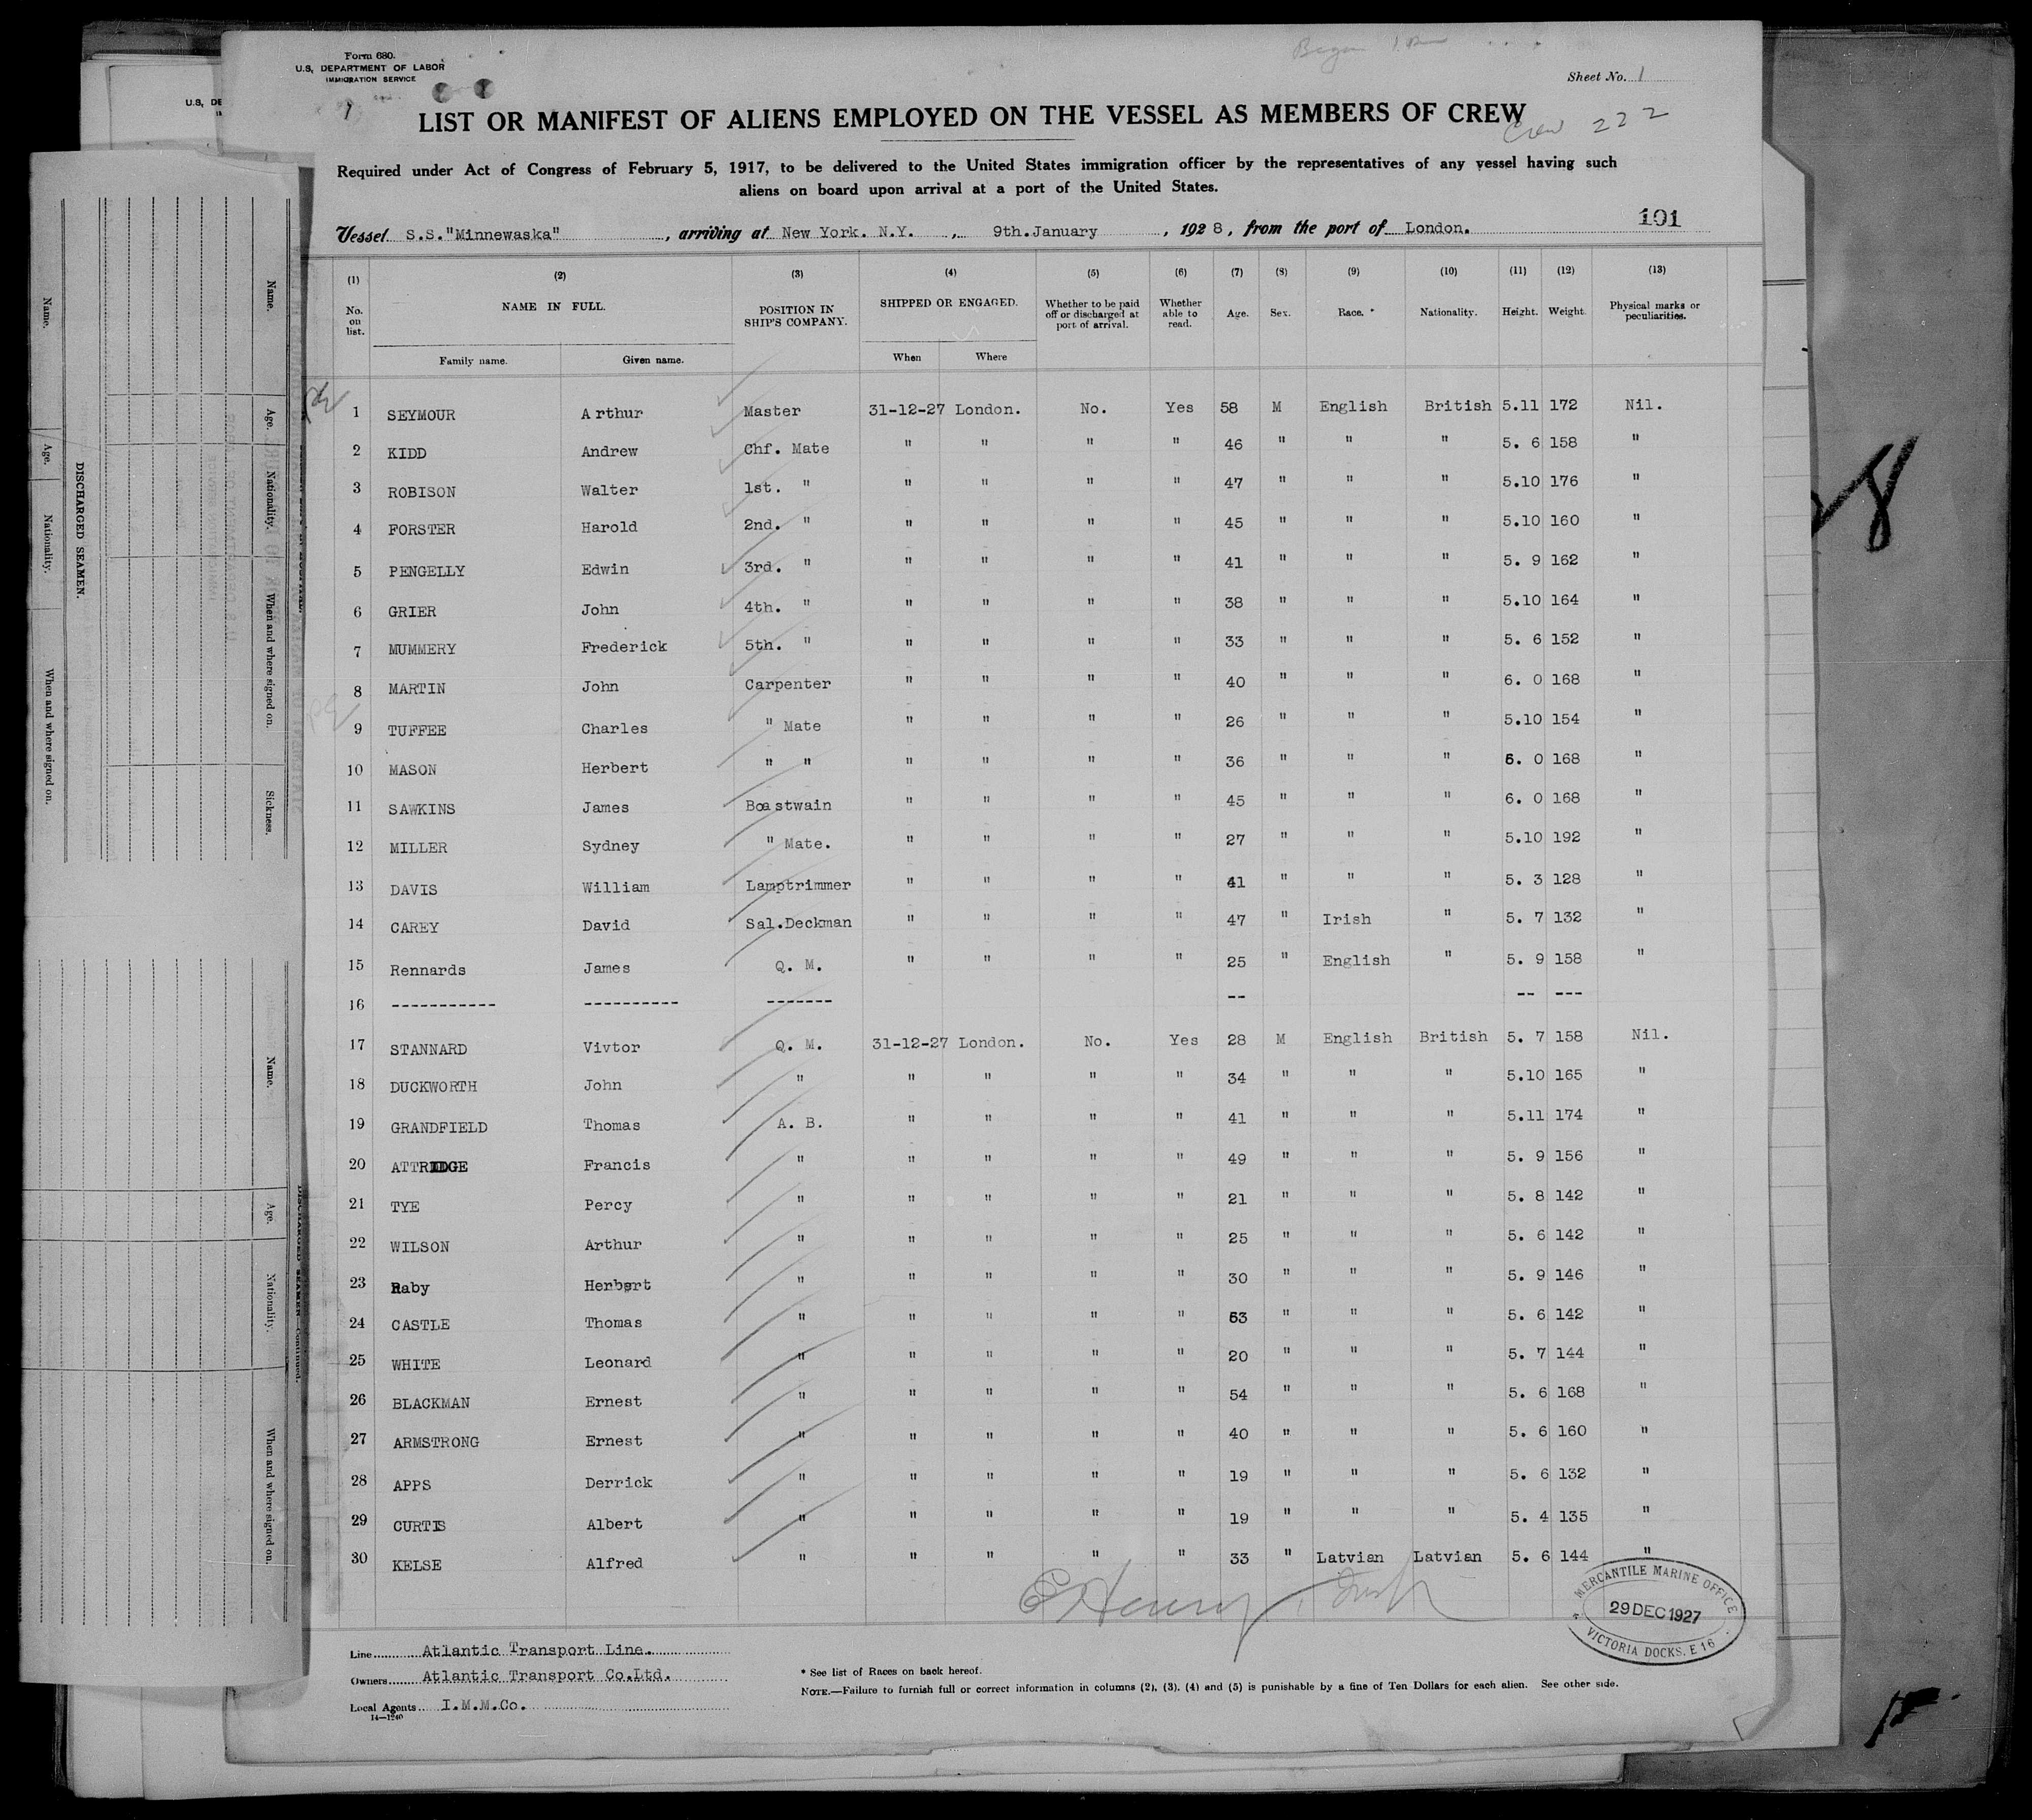 Form 680.
U.S. DEPARTMENT OF LABOR
IMMIGRATION SERVICE
Sheet No. 1
LIST OR MANIFEST OF ALIENS EMPLOYED ON THE VESSEL AS MEMBERS OF CREW
Crew 222
Required under Act of Congress of February 5, 1917, to be delivered to the United States immigration officer by the representatives of any vessel having such
aliens on board upon arrival at a port of the United States.
101
Vessel S.S."Minnewaska", arriving at New York. N.Y., 9th.January, 1928, from the port of London.
(1) (2) (3) (4) (5) (6) (7) (8) (9) (10) (11) (12) (13)
No. on list. NAME IN FULL. POSITION IN SHIP'S COMPANY. SHIPPED OR ENGAGED. Whether to be paid off or discharged at port of arrival. Whether able to read. Age. Sex. Race. * Nationality. Height. Weight. Physical marks or peculiarities.
Family name. Given name. When Where
1 SEYMOUR Arthur Master 31-12-27 London. No. Yes 58 M English British 5.11 172 Nil.
2 KIDD Andrew Chf. Mate " " " " 46 " " " 5. 6 158 "
3 ROBISON Walter 1st. " " " " " 47 " " " 5.10 176 "
4 FORSTER Harold 2nd. " " " " " 45 " " " 5.10 160 "
5 PENGELLY Edwin 3rd. " " " " " 41 " " " 5. 9 162 "
6 GRIER John 4th. " " " " " 38 " " " 5.10 164 "
7 MUMMERY Frederick 5th. " " " " " 33 " " " 5. 6 152 "
8 MARTIN John Carpenter " " " " 40 " " " 6. 0 168 "
9 TUFFEE Charles " Mate " " " " 26 " " " 5.10 154 "
10 MASON Herbert " " " " " " 36 " " " 6. 0 168 "
11 SAWKINS James Boastwain " " " " 45 " " " 6. 0 168 "
12 MILLER Sydney " Mate. " " " " 27 " " " 5.10 192 "
13 DAVIS William Lamptrimmer " " " " 41 " " " 5. 3 128 "
14 CAREY David Sal.Deckman " " " " 47 " Irish " 5. 7 132 "
15 Rennards James Q. M. " " " " 25 " English " 5. 9 158 "
16 ----------- ---------- ------- -- -- ---
17 STANNARD Vivtor Q. M. 31-12-27 London. No. Yes 28 M English British 5. 7 158 Nil.
18 DUCKWORTH John " " " " " 34 " " " 5.10 165 "
19 GRANDFIELD Thomas A. B. " " " " 41 " " " 5.11 174 "
20 ATTRIDGE Francis " " " " " 49 " " " 5. 9 156 "
21 TYE Percy " " " " " 21 " " " 5. 8 142 "
22 WILSON Arthur " " " " " 25 " " " 5. 6 142 "
23 Raby Herbert " " " " " 30 " " " 5. 9 146 "
24 CASTLE Thomas " " " " " " " " 5. 6 142 "
25 WHITE Leonard " " " " " 20 " " " 5. 7 144 "
26 BLACKMAN Ernest " " " " " 54 " " " 5. 6 168 "
27 ARMSTRONG Ernest " " " " " 40 " " " 5. 6 160 "
28 APPS Derrick " " " " " 19 " " " 5. 6 132 "
29 CURTIS Albert " " " " " 19 " " " 5. 4 135 "
30 KELSE Alfred " " " " " 33 " Latvian Latvian 5. 6 144 "
MERCANTILE MARINE OFFICE
29 DEC 1927
VICTORIA DOCKS. E 16
Line Atlantic Transport Line.
Owners Atlantic Transport Co.Ltd.
Local Agents I.M.M.Co.
14-1240
* See list of Races on back hereof.
NOTE.—Failure to furnish full or correct information in columns (2), (3), (4) and (5) is punishable by a fine of Ten Dollars for each alien. See other side.
DISCHARGED SEAMEN.
Name. Age. Nationality. When and where signed on.
Name. Age. Nationality. When and where signed on. Sickness.
DISCHARGED SEAMEN—Continued.
Name. Age. Nationality. When and where signed on.